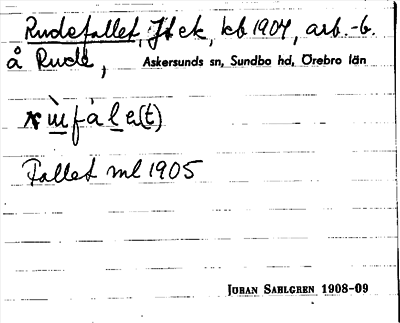 Rudefallet, Jb ek, kb 1904, arb.-b.
å Rude, Askersunds sn, Sundbo hd, Örebro län
Fallet ml 1905
JOHAN SAHLGREN 1908-09